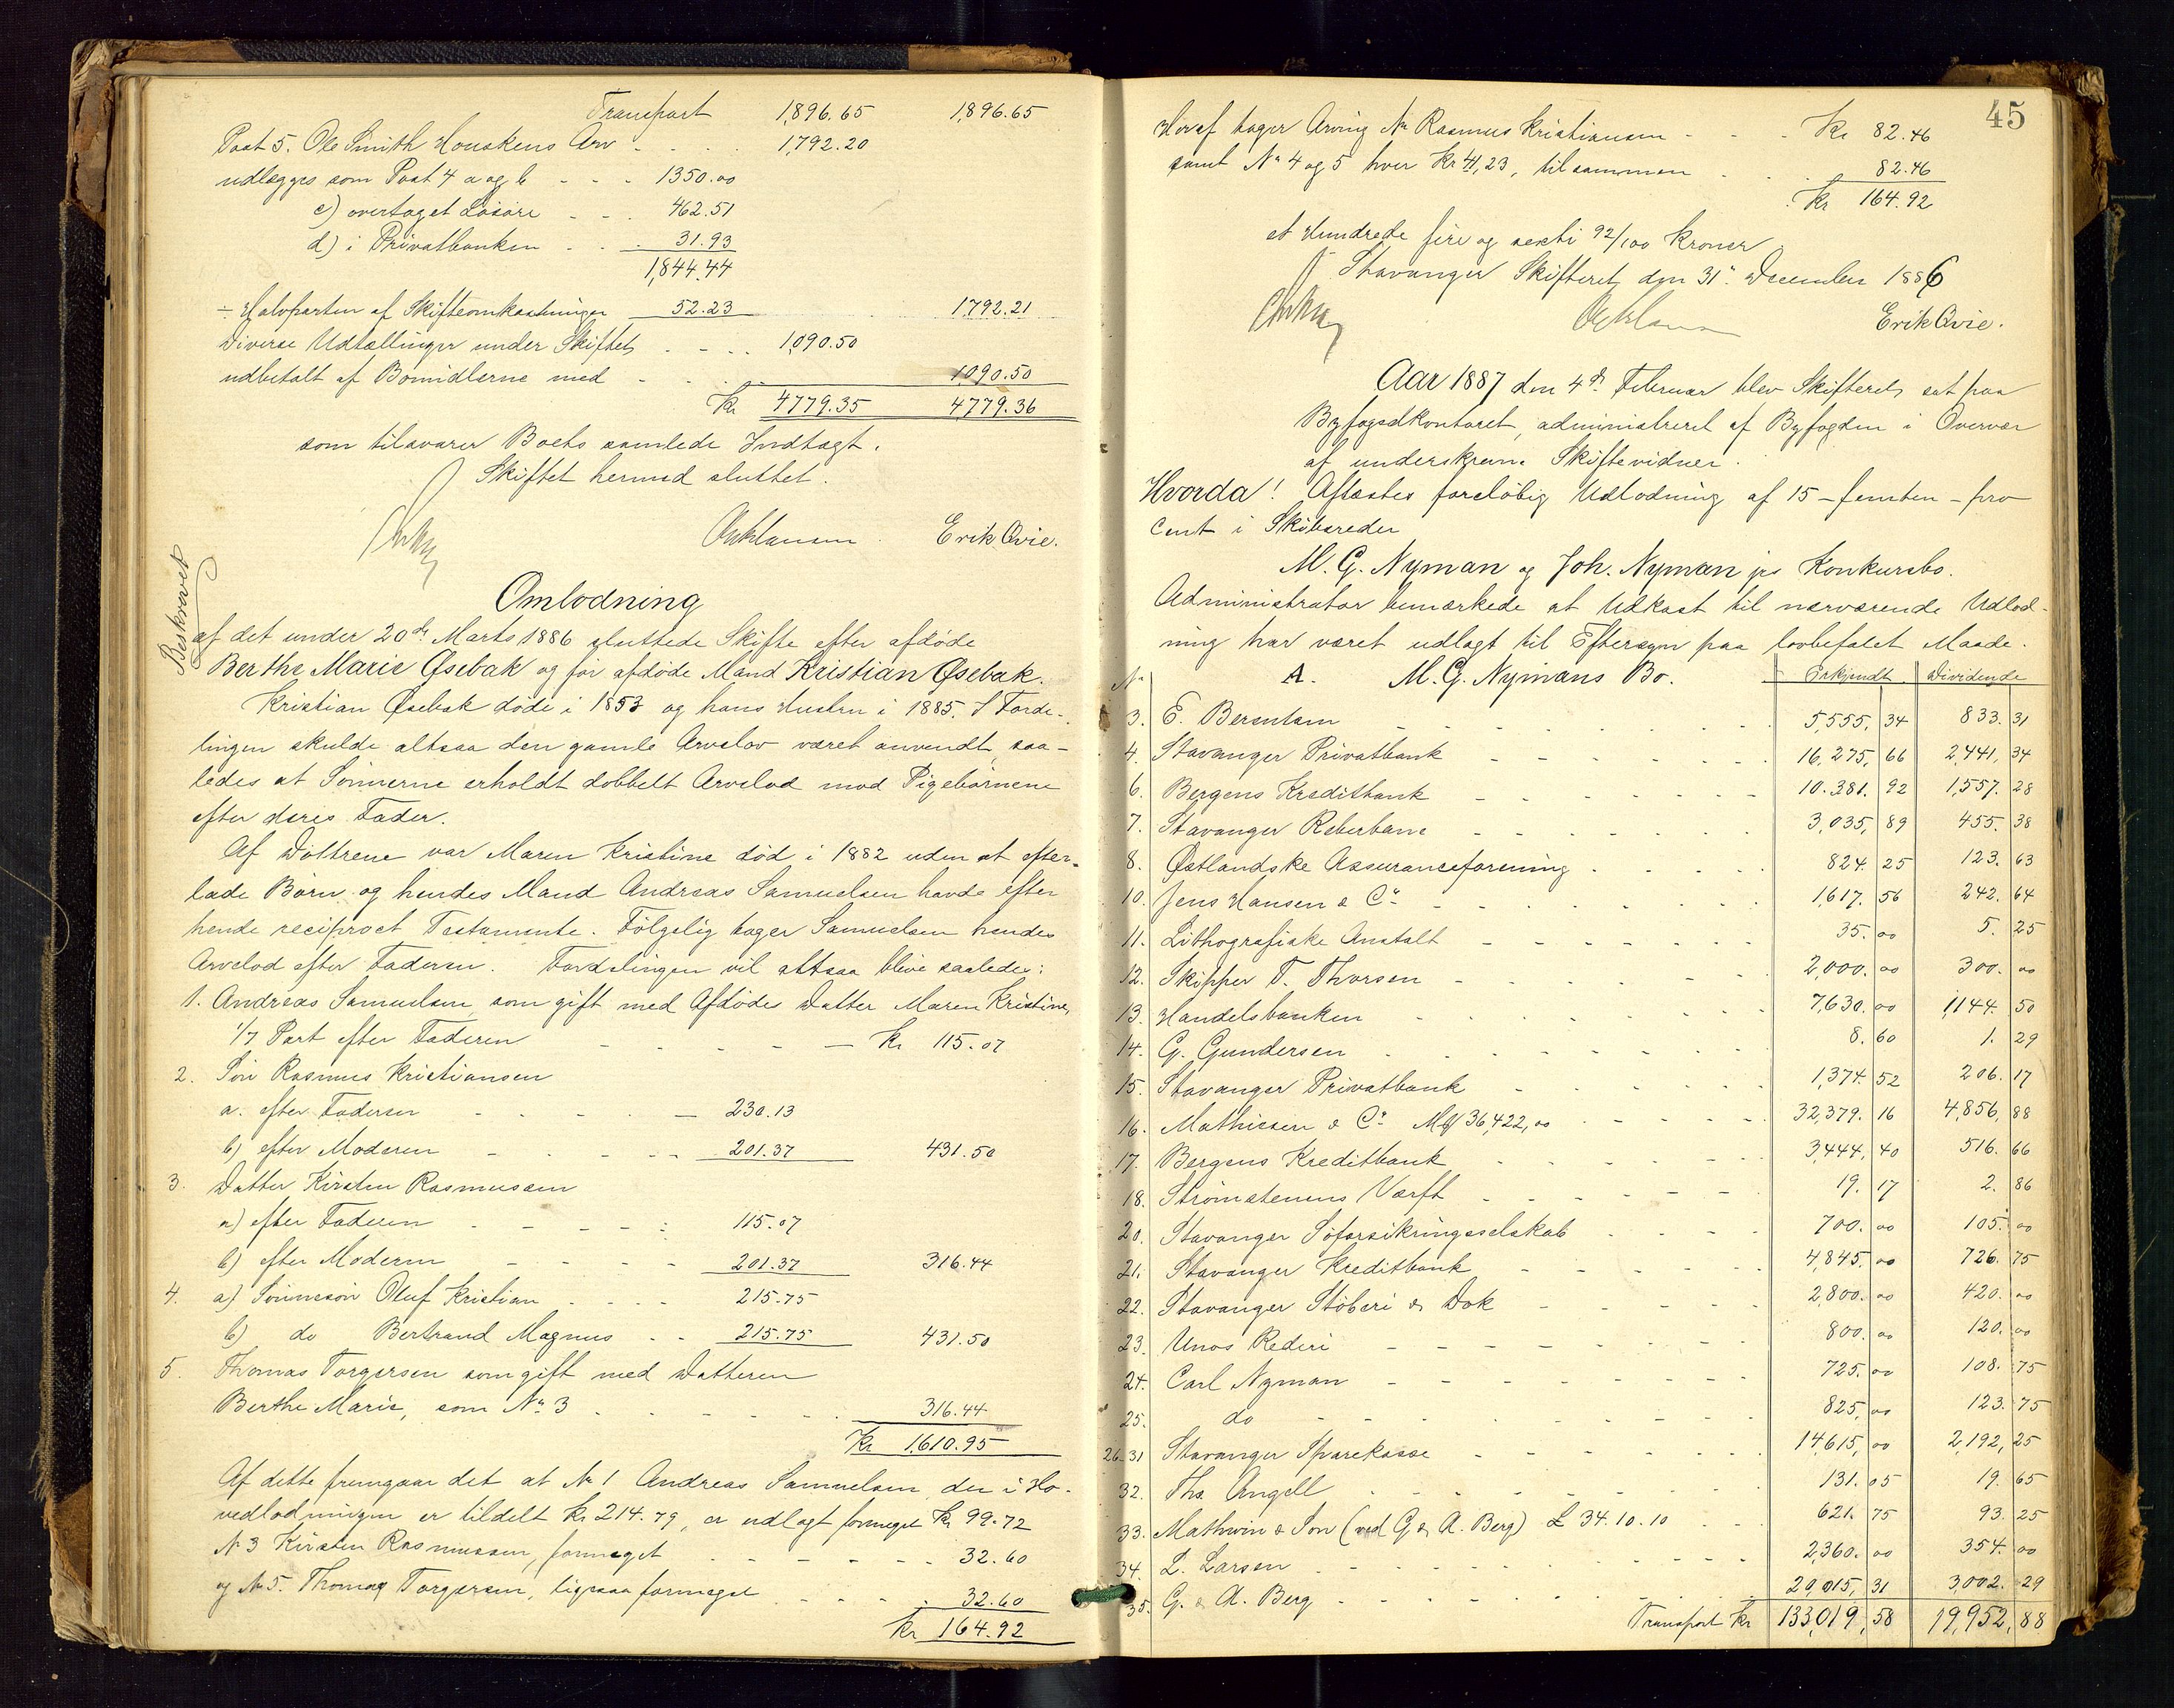 Transport 1,896.65 1,896.65
Post 5. Ole Smith Houskens Arv - - - 1,792.20
udlægges som Post 4 a og b - - - 1350.00
c) overtaget Løsøre - - - 462.51
d) i Privatbanken - - - 31.93
1,844.44
÷ Halvparten af Skifteomkostninger 52.23 1,792.21
Diverse Udtællinger under Skiftet - - - 1,090.50
udbetalt af Bomidlerne med - - - 1,090.50
Kr 4,779.35 4,779.36
som tilsvarer Boets samlede Indtægt.
Skiftet hermed sluttet.
Erik Qvie.
Beskrevet
Omlodning
af det under 20de Marts 1886 sluttede Skifte efter afdøde
Berthe Marie Øsebak og før afdøde Mand Kristian Øsebak.
Kristian Øsebak døde i 1853 og hans Hustru i 1885. I Forde-
lingen skulde altsaa den gamle Arvelov været anvendt saa-
ledes at Sønnerne erholdt dobbelt Arvelod mod Pigebørnene
efter deres Fader.
Af Døttrene var Maren Kristine død i 1882 uden at efter-
lade Børn og hendes Mand Andreas Samuelsen havde efter
hende reciproct Testamente. Følgelig tager Samuelsen hendes
Arvelod efter Faderen. Fordelingen vil altsaa blive saaledes:
1. Andreas Samuelsen som gift med Afdødes Datter Maren Kristine,
1/7 Part efter Faderen - - - Kr 115.07
2. Søn Rasmus Kristiansen
a. efter Faderen - - - 230.13
b) efter Moderen - - - 201.37 431.50
3. Datter Kirsten Rasmussen
a) efter Faderen - - - 115.07
b) efter Moderen - - - 201.37 316.44
4. a) Sønnesøn Oluf Kristian - - - 215.75
b) do Bertrand Magnus - - 215.75 431.50
5. Thomas Torgersen som gift med Datteren
Berthe Marie, som No 3 - - - 316.44
Kr 1,610.95
Af dette fremgaar det at No 1 Andreas Samuelsen, der i Ho-
vedlodningen er tildelt Kr 214.79, er udlagt formeget Kr 99.72
No 3 Kirsten Rasmussen, formeget - - - 32.60
og No 5. Thomas Torgersen, ligesaa formeget - - - 32.60
Kr 164.92
45
Heraf tager Arving No Rasmus Kristiansen - - - Kr 82.46
samt No 4 og 5 hver Kr 41,23, tilsammen - - - 82.46
Kr 164.92
et Hundrede fire og sexti 92/100 Kroner
Stavanger Skifteret, den 31te December 1886
Erik Qvie.
Aar 1887 den 4de Februar blev Skifteret, sat paa
Byfogedkontoret, administreret af Byfogden i Overvær
af underskrevne Skiftevidner.
Hvorda! Aflæstes foreløbig Udlodning af 15 - femten - pro
cent i Skibsreder
M. G. Nyman og Joh. Nyman jrs Konkursbo.
Administrator bemærkede at Udkast til nærværende Udlod-
ning har været udlagt til Eftersyn paa lovbefalet Maade.
No A. M. G. Nymans Bo. Erkjendt Dividende
3. E. Berentsen - - - 5,555,34 833.31
4. Stavanger Privatbank - - - 16,275,66 2,441,34
6. Bergens Kreditbank - - - 10.381.92 1,557.28
7. Stavanger Reberbane - - - 3,035,89 455.38
8. Østlandske Assuranceforening - - - 824.25 123.63
10. Jens Hansen & Co - - - 1,617.56 242.64
11. Lithografiske Anstalt - - - 35.00 5.25
12. Skipper T. Thorsen - - - 2,000.00 300.00
13. Handelsbanken - - - 7,630.00 1,144.50
14. G. Gundersen - - - 8.60 1.29
15. Stavanger Privatbank - - - 1,374.52 206.17
16. Mathiesen & Co Mk 36,422,00 - - - 32,379.16 4,856,88
17. Bergens Kreditbank - - - 3,444,40 516.66
18. Strømstenens Værft - - - 19.17 2.86
20. Stavanger Søforsikringsselskab - - - 700.00 105.00
21. Stavanger Kreditbank - - - 4,845.00 726.75
22. Stavanger Støberi & Dok - - - 2,800.00 420.00
23. Unos Rederi - - - 800.00 120.00
24. Carl Nyman - - - 725.00 108.75
25. do - - - 825,00 123.75
26-31 Stavanger Sparekasse - - - 14,615,00 2,192,25
32. Ths. Angell - - - 131.05 19.65
33. Mathwin & Son (ved G. & A. Berg) £ 34.10.10 - - 621.75 93.25
34. L. Larsen - - - 2,360.00 354.00
35. G. & A. Berg - - - 20,015,31 3,002.29
Transport Kr 133,019,58 19,952,88